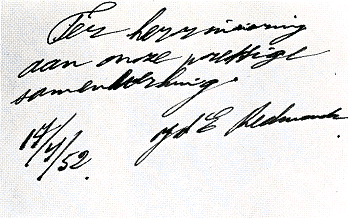 Ter herinnering
aan onze prettige
samenwerking.
14/4/52.